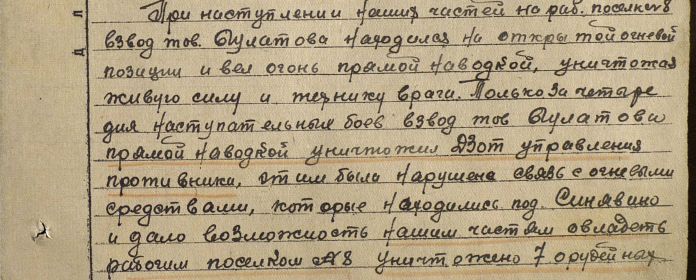 При наступлении наших частей на раб. поселк №8
взвод тов. Булатова находился на открытой огневой
позиции и вел огонь прямой наводкой, уничтожая
живую силу и технику врага. Только за четыре
дня наступательных боев взвод тов Булатова
прямой наводкой уничтожил Дзот управления
противника, этим была нарушена связь с огневыми
средствами, которые находились под. Синявино
и дало возможность нашим частям овладеть
рабочим поселком №8 уничтожено 7 орудейных